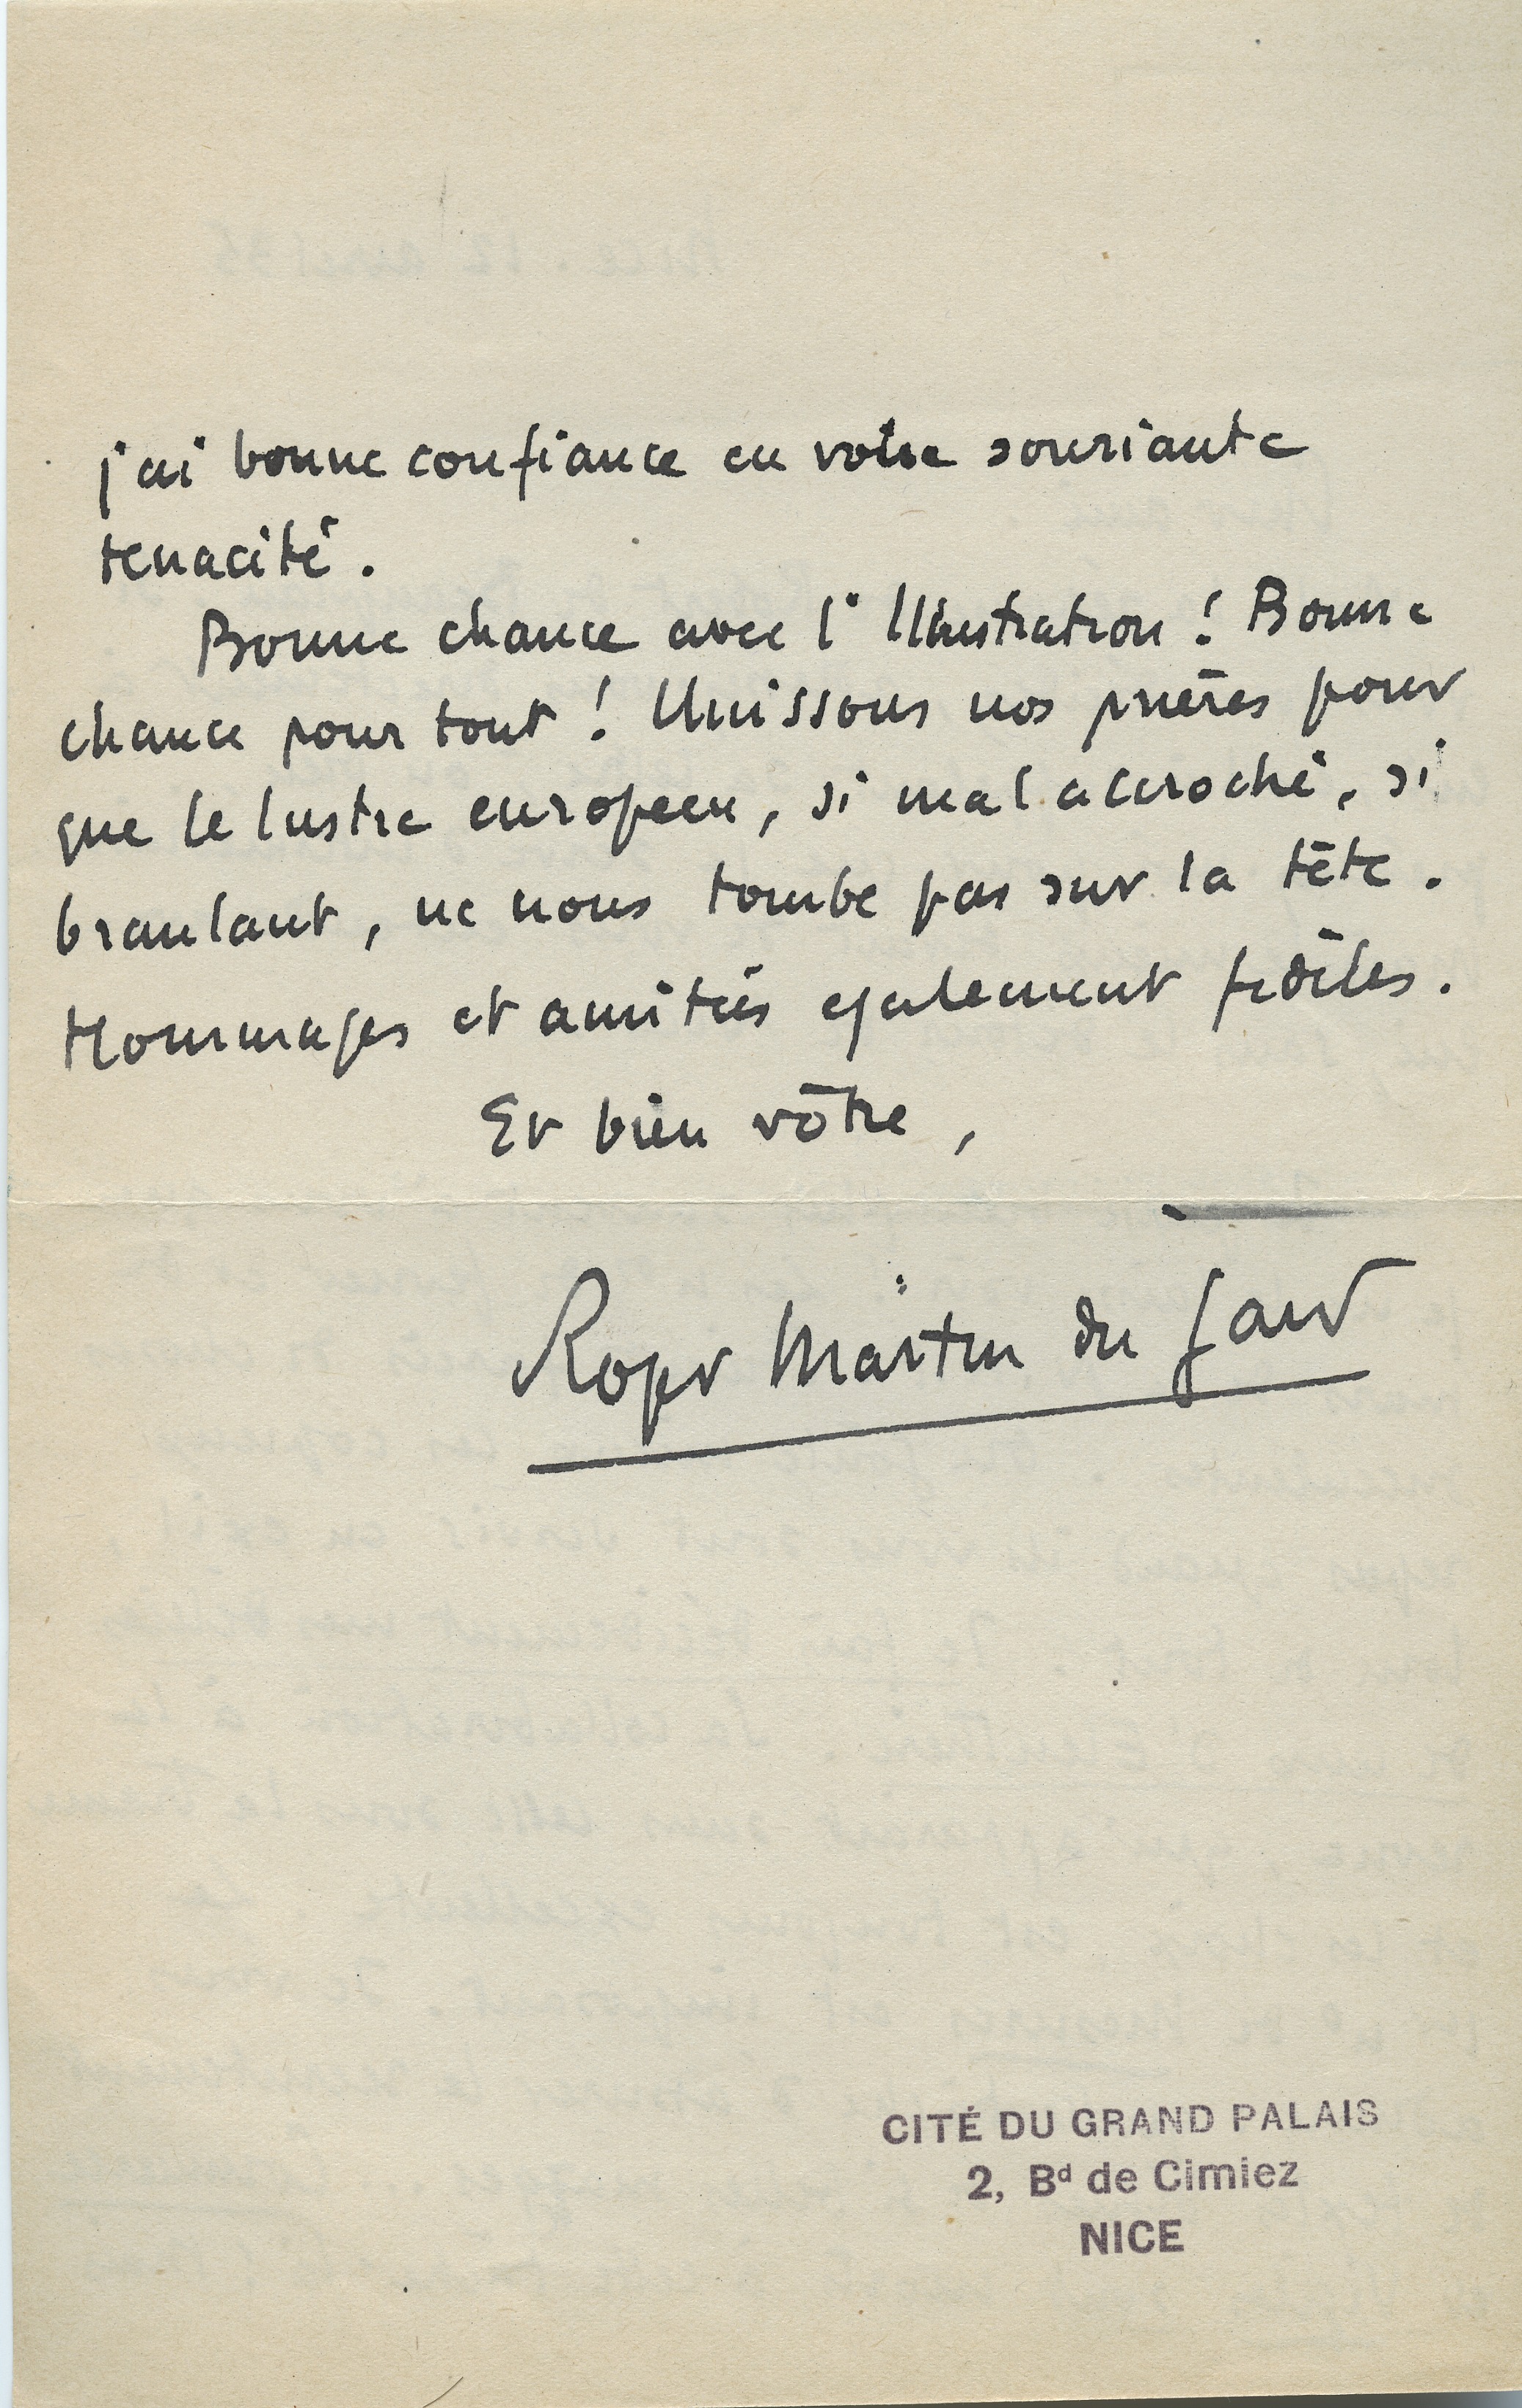 j'ai bonne confiance en votre souriante
tenacité.
Bonne chance avec l'Illustration ! Bonne
chance pour tout ! Unissons nos prières pour
que le lustre europeen, si mal accroché, si
branlant, ne nous tombe pas sur la tête.
Hommages et amitiés egalement fidèles.
Et bien vôtre,
Roger Martin du Gard
CITÉ DU GRAND PALAIS
2, Bd de Cimiez
NICE